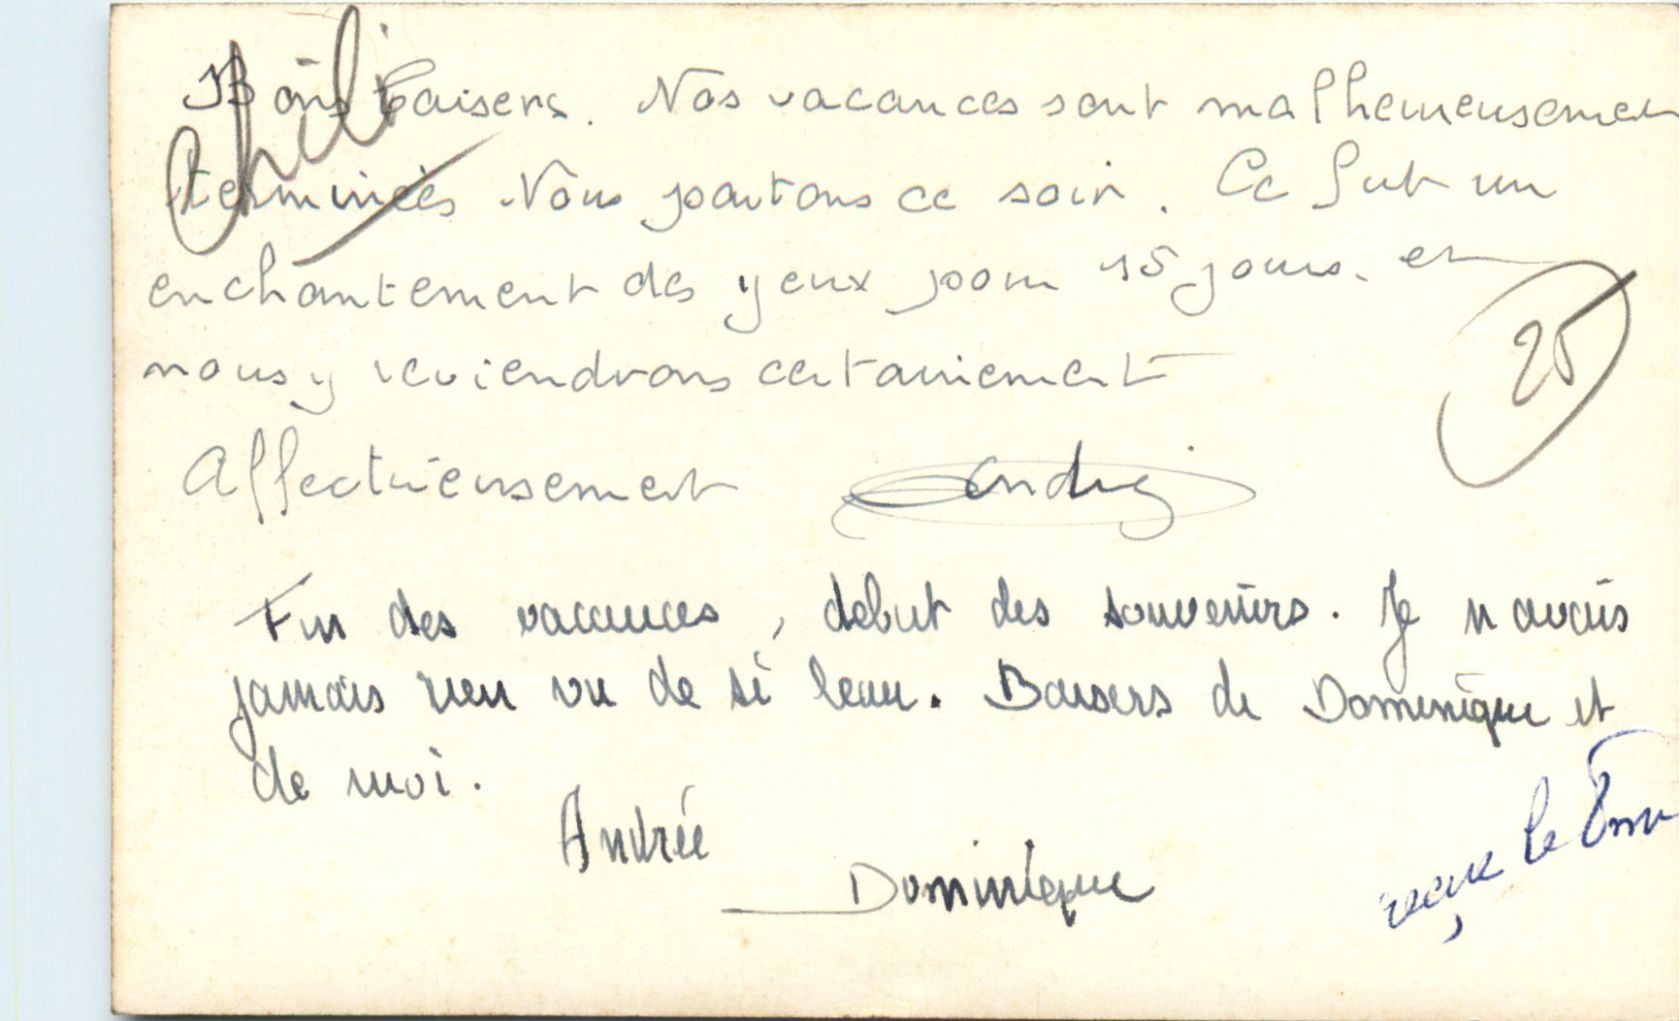 Chili
Bons baisers. Nos vacances sont malheureusement
terminées Nous partons ce soir. Ce fut un
enchantement des yeux pour 15 jours. et
nous y reviendrons certainement
25
Affectueusement
Fin des vacances, début des souvenirs. Je n'avais
jamais rien vu de si beau. Baisers de Dominique et
de moi.
Andrée
Dominique
reçue le